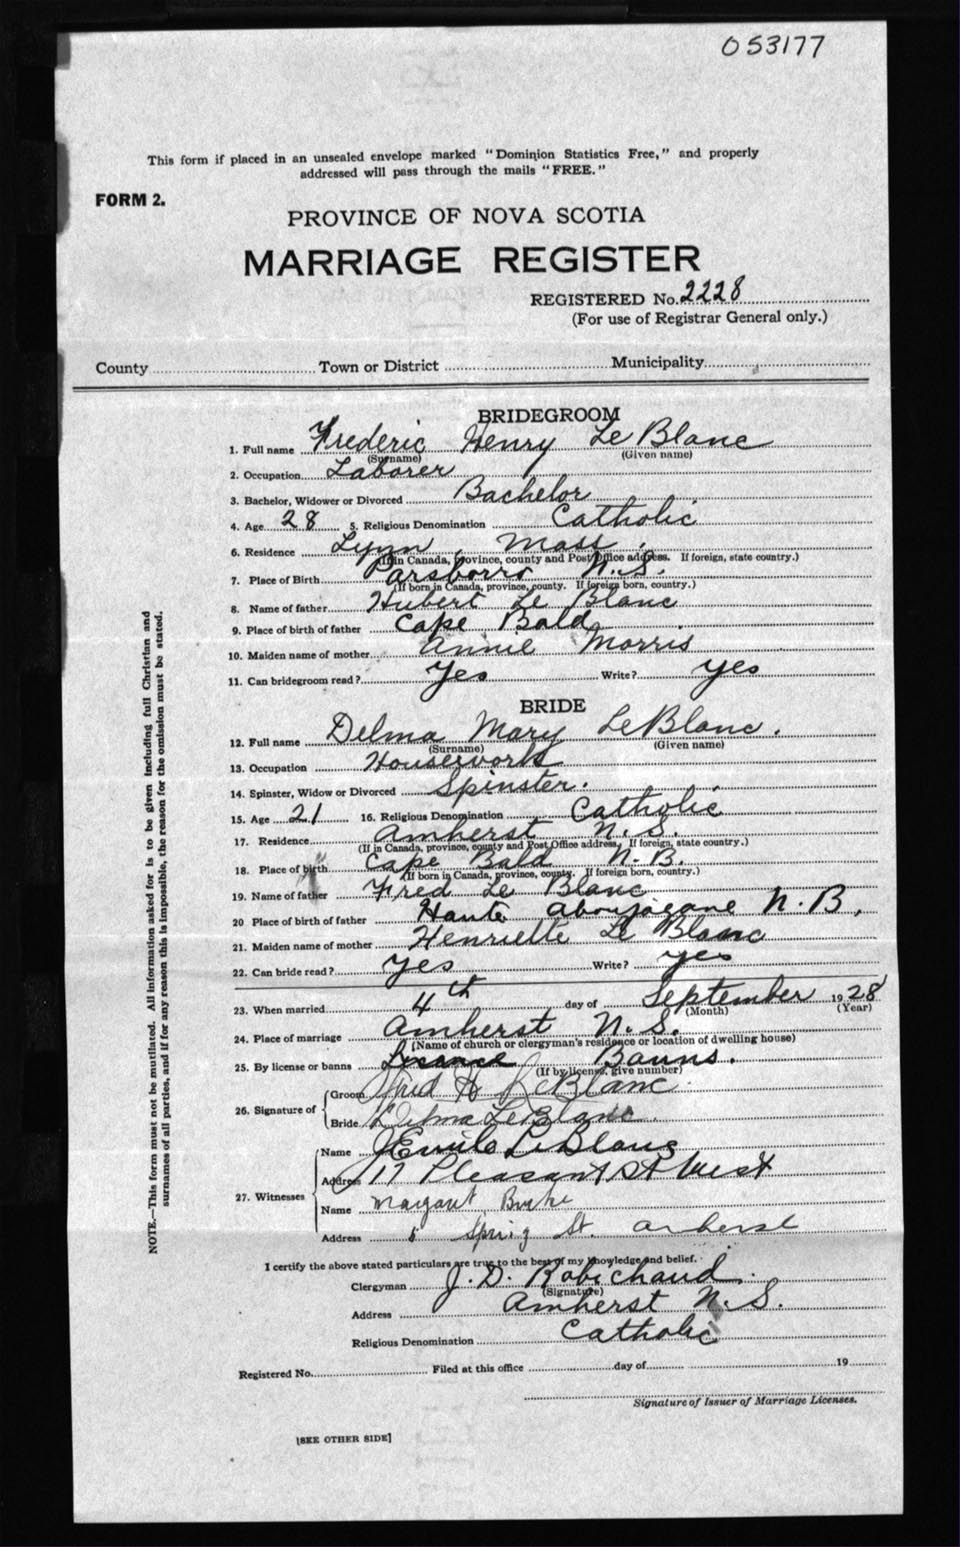 053177
This form if placed in an unsealed envelope marked "Dominion Statistics Free," and properly
addressed will pass through the mails "FREE."
FORM 2.
PROVINCE OF NOVA SCOTIA
MARRIAGE REGISTER
REGISTERED No. 2228
(For use of Registrar General only.)
County Town or District Municipality
BRIDEGROOM
1. Full name Frederic Henry Le Blanc
(Surname) (Given name)
2. Occupation Laborer
3. Bachelor, Widower or Divorced Bachelor
4. Age 28 5. Religious Denomination Catholic
6. Residence Lynn, Mass.
(If in Canada, province, county and Post Office address. If foreign, state country.)
7. Place of Birth Parsborro N.S.
(If born in Canada, province, county. If foreign born, country.)
8. Name of father Hubert Le Blanc
9. Place of birth of father Cape Bald
10. Maiden name of mother Annie Morris
11. Can bridegroom read? Yes Write? yes
BRIDE
12. Full name Delma Mary LeBlanc.
(Surname) (Given name)
13. Occupation Housework
14. Spinster, Widow or Divorced Spinster.
15. Age 21 16. Religious Denomination Catholic
17. Residence Amherst N.S.
(If in Canada, province, county and Post Office address, If foreign, state country.)
18. Place of birth Cape Bald N.B.
(If born in Canada, province, county. If foreign born, country.)
19. Name of father Fred Le Blanc
20 Place of birth of father Haute Aboujagane N.B.
21. Maiden name of mother Henriette Le Blanc
22. Can bride read? yes Write? yes
23. When married 4th day of September 1928
(Month) (Year)
24. Place of marriage Amherst N.S.
(Name of church or clergyman's residence or location of dwelling house)
25. By license or banns Banns.
(If by license, give number)
26. Signature of Groom Fred H LeBlanc
Bride Delma LeBlanc
27. Witnesses Name J Emile LeBlanc
Address 17 Pleasant St West
Name Margaret Burke
Address 5 Spring St. Amherst
I certify the above stated particulars are true to the best of my knowledge and belief.
Clergyman J. D. Robichaud.
(Signature)
Address Amherst N.S.
Religious Denomination Catholic
Registered No. Filed at this office day of 19
Signature of Issuer of Marriage Licenses.
[SEE OTHER SIDE]
NOTE.—This form must not be mutilated. All information asked for is to be given including full Christian and
surnames of all parties, and if for any reason this is impossible, the reason for the omission must be stated.